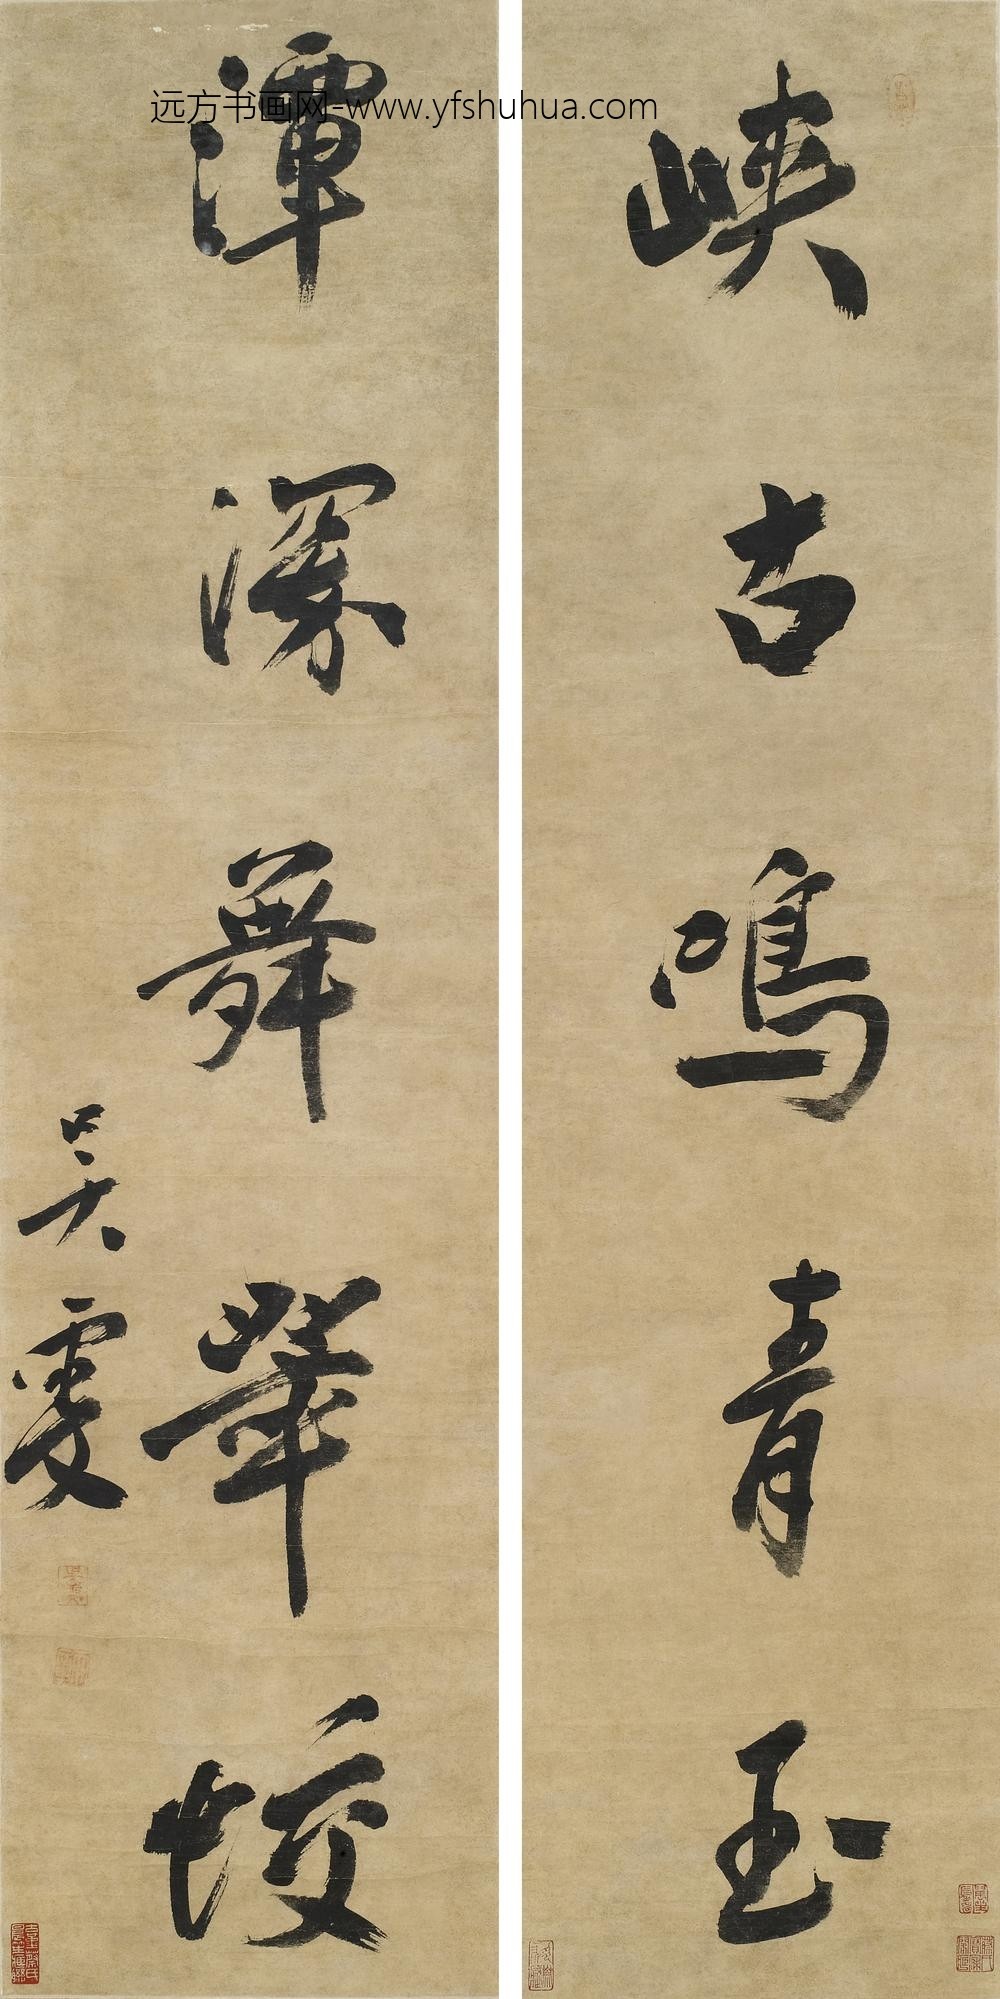 远方书画网-www.yfshuhua.com
峽古鳴青玉
潭深舞翠蛟
吳雯